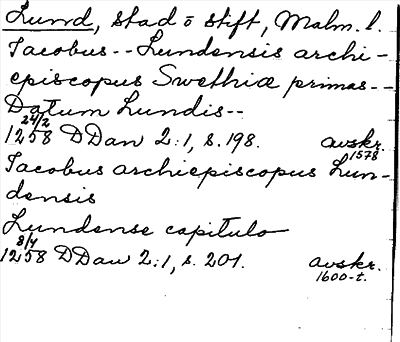 Lund, stad o stift, Malm. l.
Jacobus -- Lundensis archi-
episcopus Swethiæ primas --
Datum Lundis --
24/2
1258 DDan 2:1, s. 198. avskr.
1578
Jacobus archiepiscopus Lun-
densis
Lundense capitulo
8/4
1258 DDan 2:1, s. 201. avskr.
1600-t.